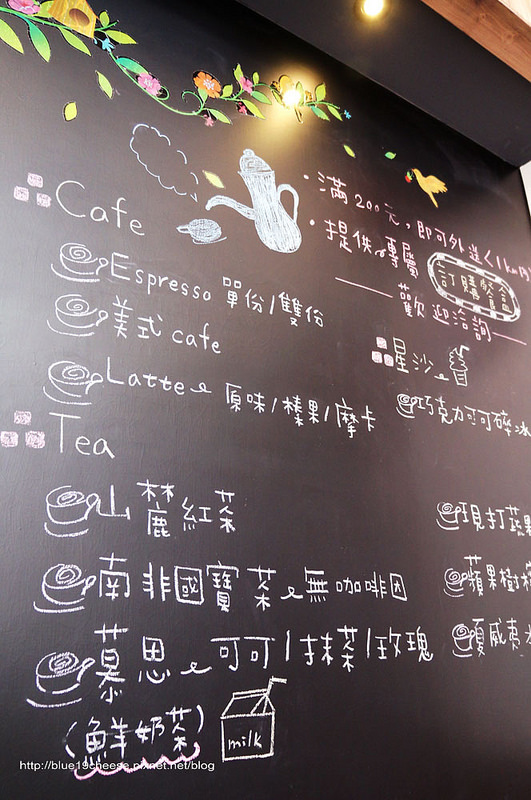 ·滿200元，即可外送<1km內
·提供 專屬
訂購餐盒
——歡迎洽詢——
Cafe
Espresso 單份/雙份
美式cafe
Latte 原味/榛果/摩卡
星沙
巧克力可可碎冰
Tea
山麓紅茶
南非國寶茶 無咖啡因
慕思 可可/抹茶/玫瑰
(鮮奶茶)
milk
現打蔬果
蘋果樹
夏威夷
http://blue19cheese.pixnet.net/blog